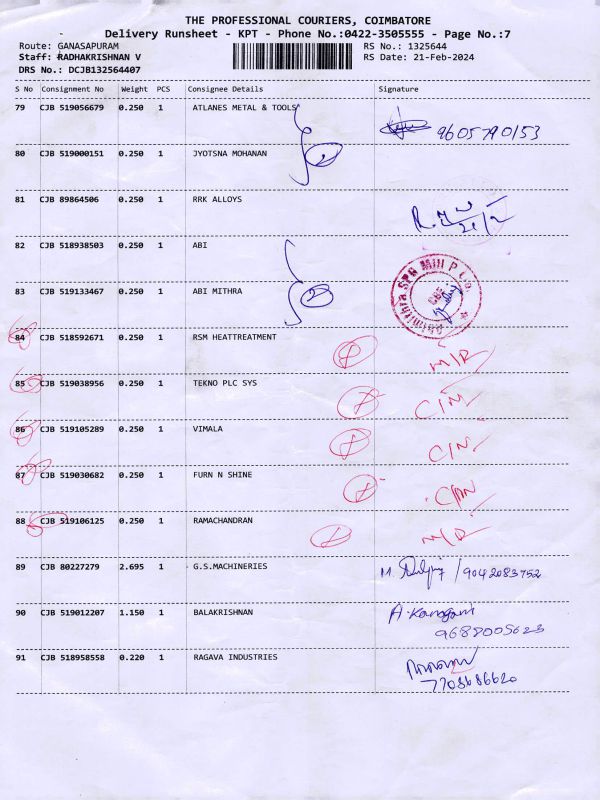 THE PROFESSIONAL COURIERS, COIMBATORE
Delivery Runsheet - KPT - Phone No.:0422-3505555 - Page No.:7
Route: GANASAPURAM RS No.: 1325644
Staff: RADHAKRISHNAN V RS Date: 21-Feb-2024
DRS No.: DCJB132564407
S No Consignment No Weight PCS Consignee Details Signature
79 CJB 519056679 0.250 1 ATLANES METAL & TOOLS
9605790153
80 CJB 519000151 0.250 1 JYOTSNA MOHANAN 2
81 CJB 89864506 0.250 1 RRK ALLOYS
21/2
82 CJB 518938503 0.250 1 ABI
83 CJB 519133467 0.250 1 ABI MITHRA 2
Abimithra SPG Mill P Ltd. CBE
84 CJB 518592671 0.250 1 RSM HEATTREATMENT
85 CJB 519038956 0.250 1 TEKNO PLC SYS
86 CJB 519105289 0.250 1 VIMALA
87 CJB 519030682 0.250 1 FURN N SHINE
88 CJB 519106125 0.250 1 RAMACHANDRAN
89 CJB 80227279 2.695 1 G.S.MACHINERIES
9042083752
90 CJB 519012207 1.150 1 BALAKRISHNAN
91 CJB 518958558 0.220 1 RAGAVA INDUSTRIES
7708686620